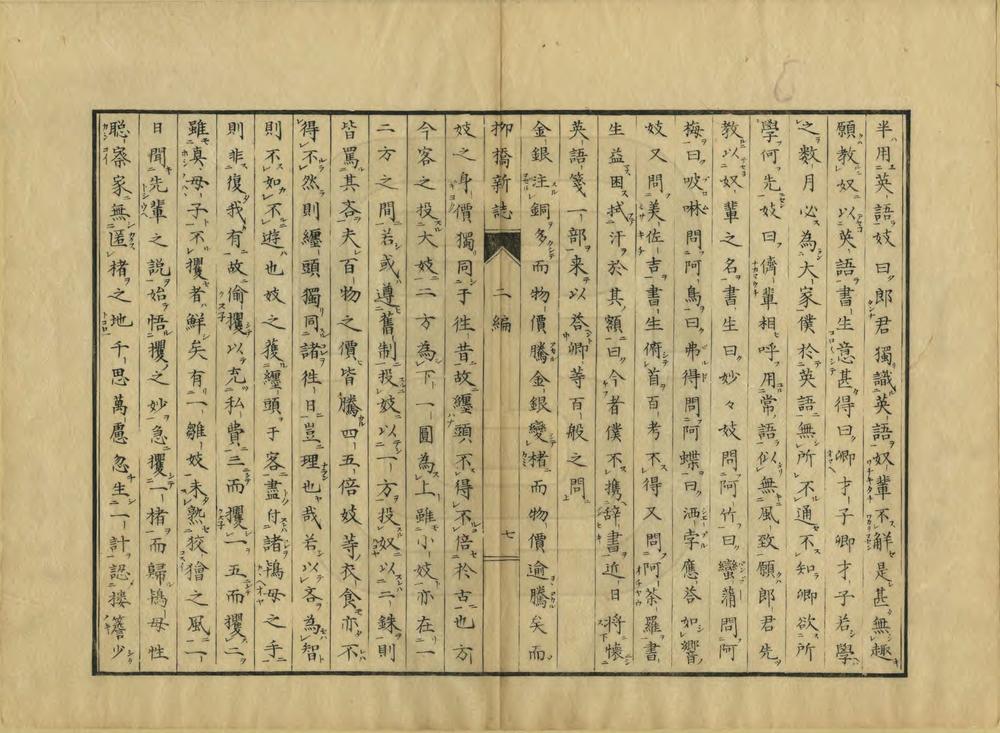 半用英語妓曰郎君獨識英語奴輩不解是甚無趣
願教奴以英語書生意甚得曰卿才子卿才子若學
之數月必為大家僕於英語無所不通不知卿欲所
學何先妓曰儕輩相呼用常語似無風致願郎君先
教以奴輩之名書生曰妙々妓問阿竹曰蠻蒲問阿
梅曰吥啉問阿鳥曰弗得問阿蝶曰洒孛應答如響
妓又問美佐吉書生俯首百考不得又問阿茶羅書
生益困拭汗於其額曰今者僕不携辞書近日將懷
英語箋一部来以答卿等百般之問
金銀注銅多而物價騰金銀變楮而物價逾騰矣而
柳橋新誌 二編 七
妓之身價獨同于徃昔故纒頭不得不倍於古也方
今客之投大妓二方為下一圓為上雖小妓亦在一
二方之間若或遵舊制投妓以一方投奴以二銖則
皆罵其吝夫百物之價皆騰四五倍妓等衣食亦不
得不然則纒頭獨同諸徃日豈理也哉若以吝為智
則不如不遊也妓之獲纒頭于客盡付諸鴇母之手
則非復我有故偷攫以充私費三而攫一五而攫二
雖真母子不攫者鮮矣有一雛妓未熟狡獪之風一
日聞先輩之説始悟攫之妙急攫一楮而歸鴇母性
聡察家無匿楮之地千思萬慮忽生一計認樓簷少